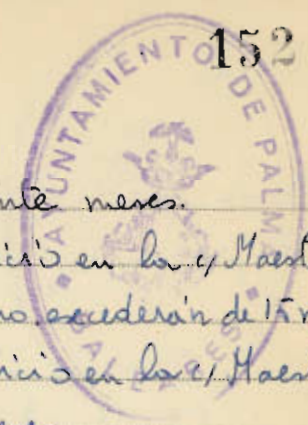 152
AYUNTAMIENTO DE PALMA
BALEARES
nte meses.
icio en la c/ Maest
no excederán de 15 m
icio en la c/ Maes